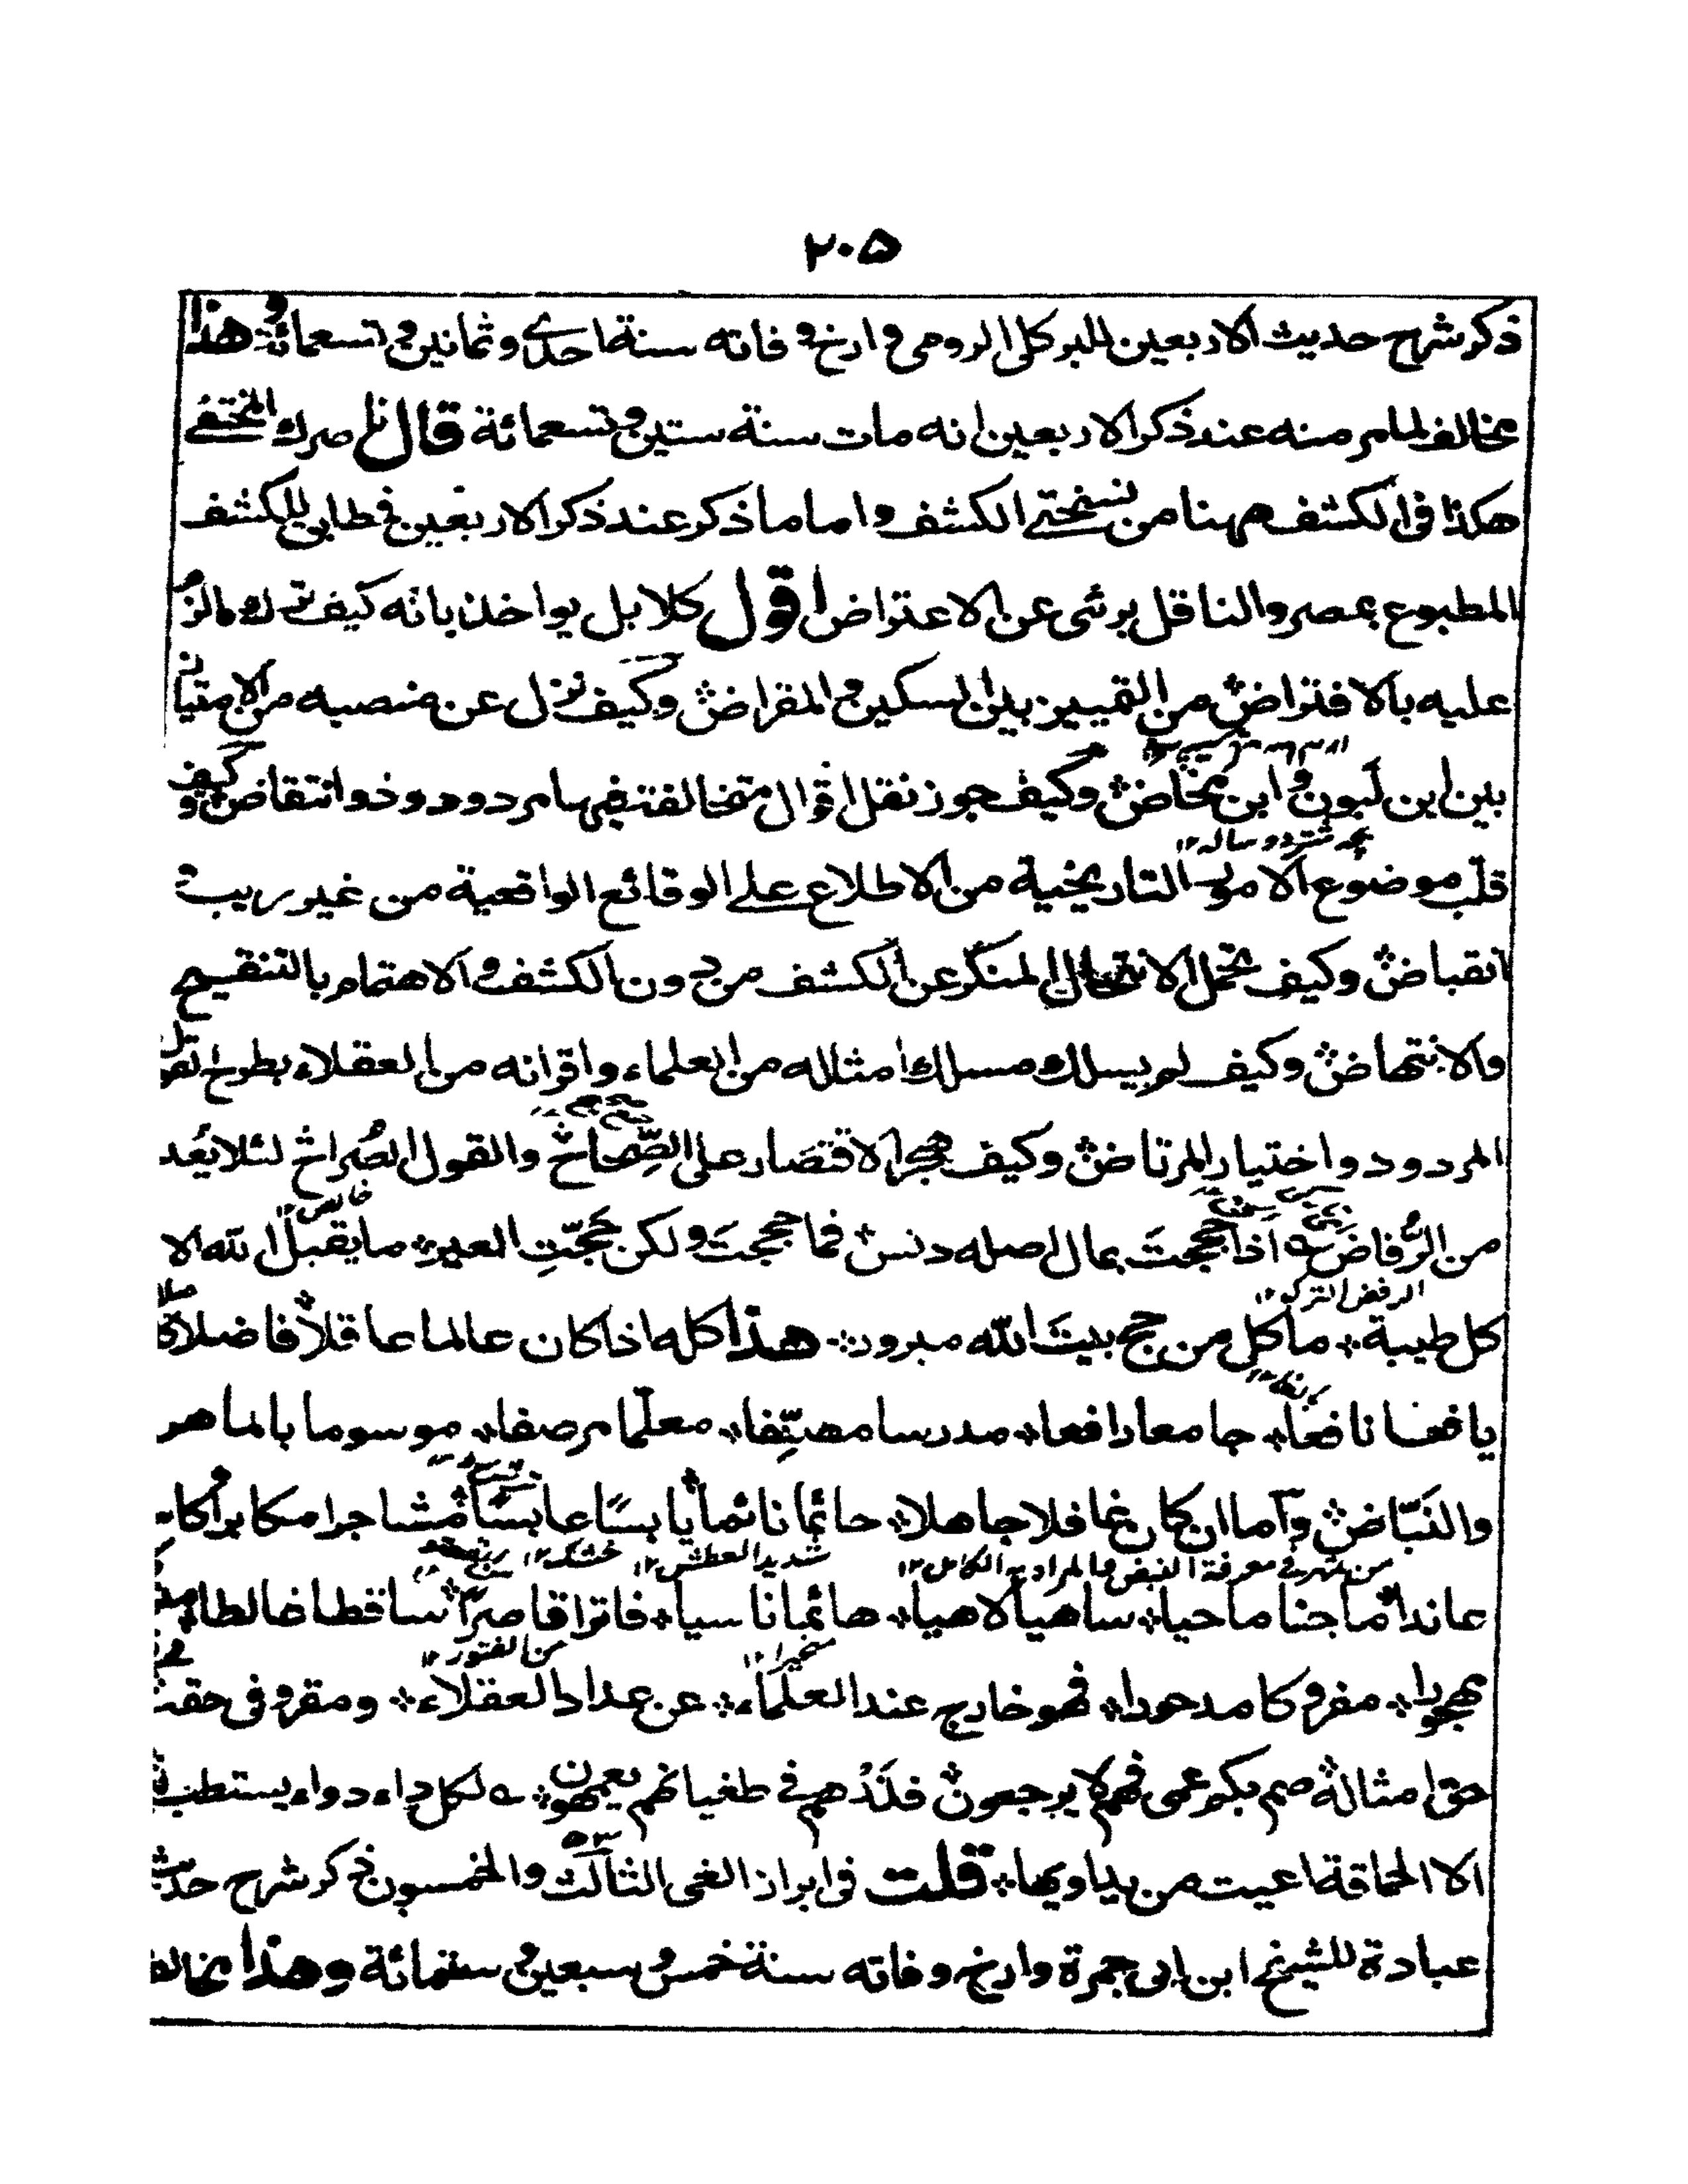 ٢٠٥
ذكر شرح حديث الاربعين للبركلى الرومى وارخ وفاته سنة احدى وثمانين وتسعمائة وهذا
مخالف لما مر منه عند ذكر الاربعين انه مات سنة ستين وتسعمائة قال ناصرك المختفى
هكذا فى الكشف ههنا من نسختى الكشف واما ما ذكر عند ذكر الاربعين فطابق للكشف
المطبوع بمصر والناقل برئ عن الاعتراض اقول كلا بل يواخذ بانه كيف ترك ما لزم
عليه بالافتراض من التمييز بين السكين والمقراض وكيف نزل عن منصبه من الامتياز
بين ابن لبون وابن مخاض وكيف جوز نقل اقوال متخالفة فيها مردود وذو انتقاض وكيف
بچه شتر دو ساله ١٢
قلب موضوع الامور التاريخية من الاطلاع على الوقائع الواقعية من غير ريب و
انقباض وكيف تحمل الانتحال المنكر عن الكشف من دون الكشف والاهتمام بالتنقيح
والانتهاض وكيف لم يسلك مسلك امثاله من العلماء واقرانه من العقلاء بطرح نقل
المردود واختيار المرتاض وكيف هجر الاقتصار على الصِّحاح والقول الصُراح لئلا يُعد
خالص ١٢
من الرُّفاض اذا حججتَ بمال اصله دنس فما حججت ولكن حجّتِ العير ما يقبل الله الا
الرفض الترك ١٢
كل طيبة ما كل من حج بيتَ الله مبرور هذا كله اذا كان عالما عاقلا فاضلا كاملا
يافعا نافعا جامعا رافعا مدرسا مصنِّفا معلّما مرصفا موسوما بالماهر
والنَبّاض واما ان كان غافلا جاهلا حائما نائما يابسًا عابسًا مشاجرا مكابرا كا
من شهر فى معرفة النبض والمراد به الكامل ١٢ شديد العطش ١٢ خشك ١٢
عاندا ماجنا ماحيا ساهيا لاهيا هائما ناسيا فاترا قاصرا ساقطا خالطا
متحيرا ١٢ من الفتور ١٢
مهجورا مفروكا مدحورا فهو خارج عند العلماء عن عداد العقلاء ومقرو فى حقه
حق امثاله صم بكم عمى فهم لا يرجعون فذَرْهم فى طغيانهم يعمهون لكل داء دواء يستطب به
الا الحماقة اعيت من يداويها قلت فى ابراز الغى الثالث والخمسون ذكر شرح حديث
عبادة للشيخ ابن ابى جمرة وارخ وفاته سنة خمس وسبعين وستمائة وهذا مخالف